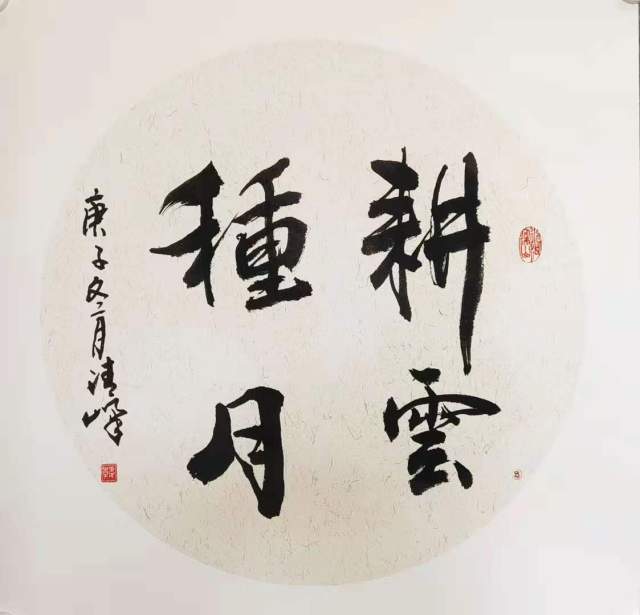 耕雲
種月
庚子冬二月清峰